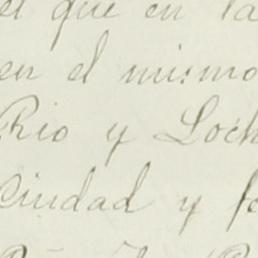 el que en la
en el mismo
Rio y Loch
Ciudad y